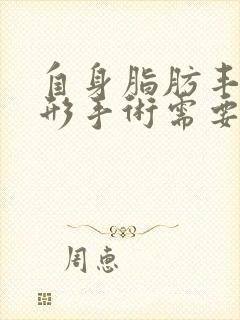 自身脂肪丰
形手術需要
周惠